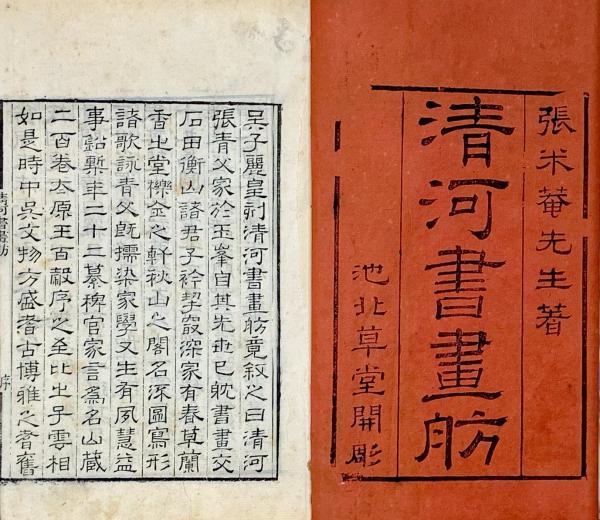 張米菴先生著
清河書畫舫
池北草堂開彫
吳子麗皇刻清河書畫舫竟敘之曰清河
張青父家於玉峯自其先世已躭書畫交
石田衡山諸君子衿契最深家有春草蘭
香之堂櫟金之軒秋山之閣名深圖寫形
諸歌詠青父旣擩染家學又生有夙慧益
事鉛槧年二十二纂稗官家言爲名山藏
二百卷太原王百穀序之至比之子雲相
如是時中吳文物方盛耆古博雅之耆舊
清河書畫舫
序